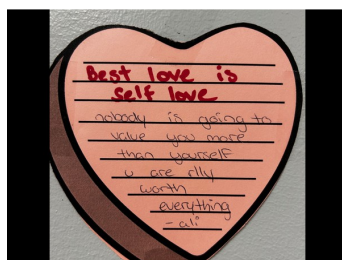 Best love is
self love
nobody is going to
value you more
than yourself
u are rlly
worth
everything
- ali